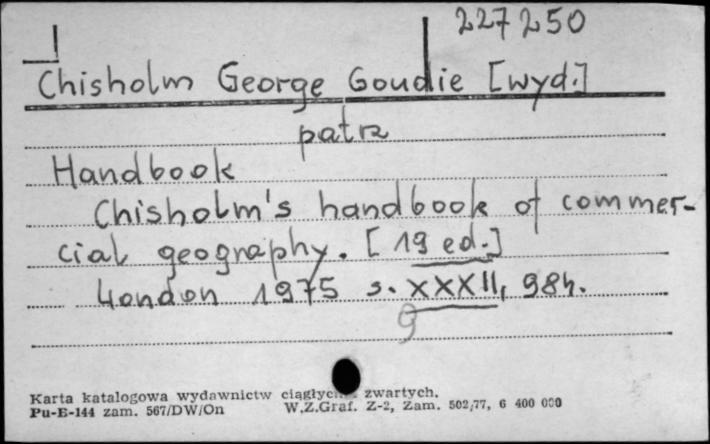 227250
Chisholm George Goudie [wyd.]
patrz
Handbook
Chisholm's handbook of commer-
cial geography. [19 ed.]
London 1975 s. XXXII, 984.
9
Karta katalogowa wydawnictw ciągłych zwartych.
Pu-E-144 zam. 567/DW/On W.Z.Graf. Z-2, Zam. 502/77, 6 400 000